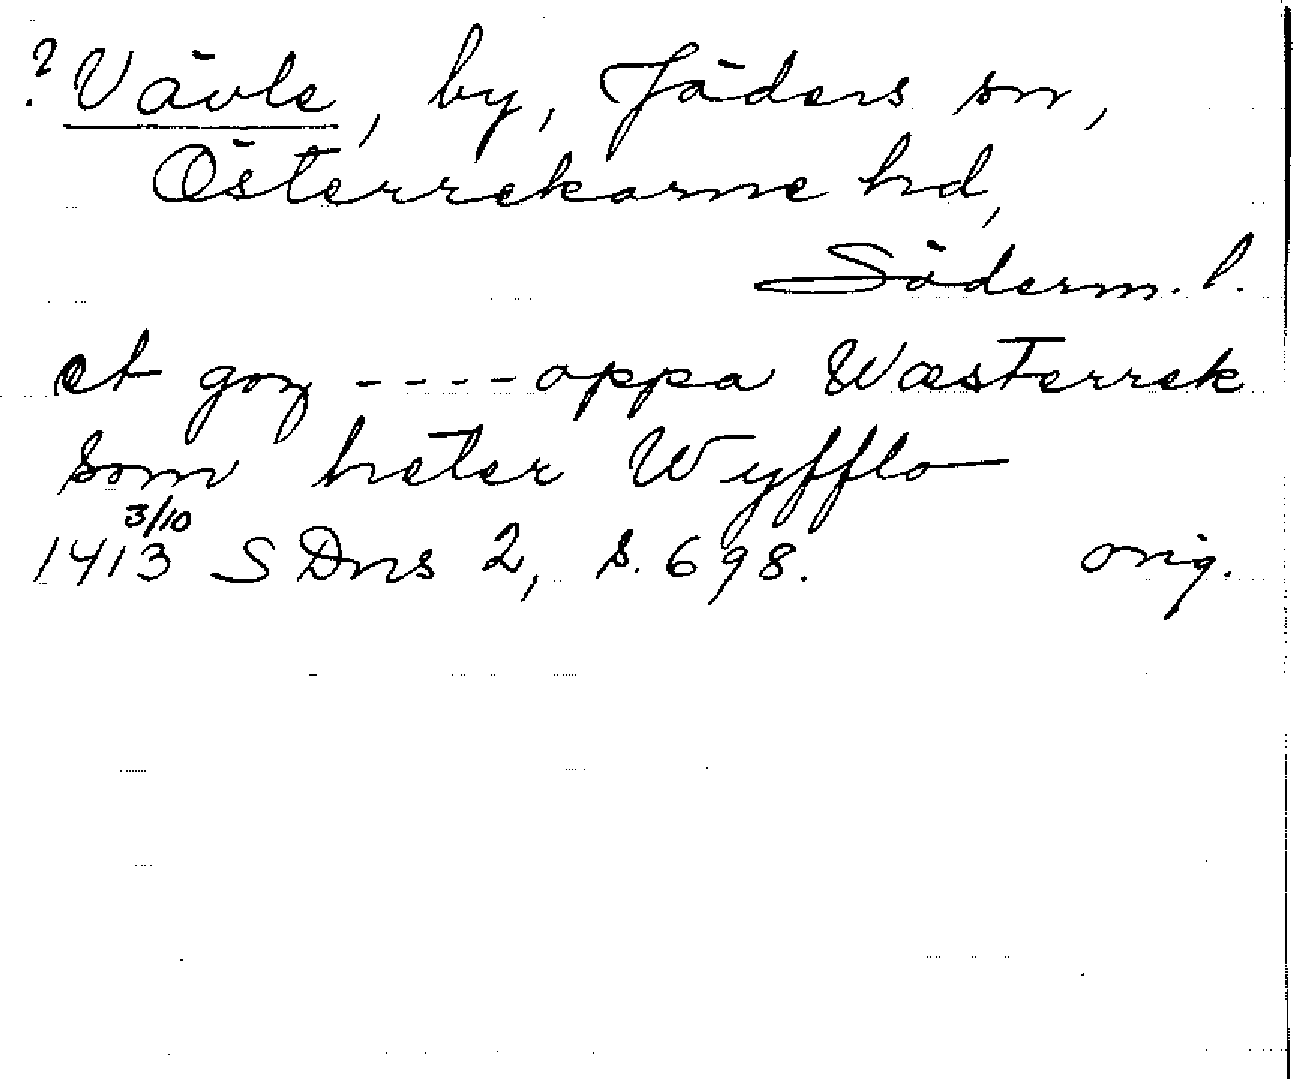 ? Vävle, by, Jäders sn,
Österrekarne hd,
Söderm. l.
et goz ---- oppa Wæsterrek
som heter Wyfflo
3/10
1413 SDns 2, s. 698. orig.